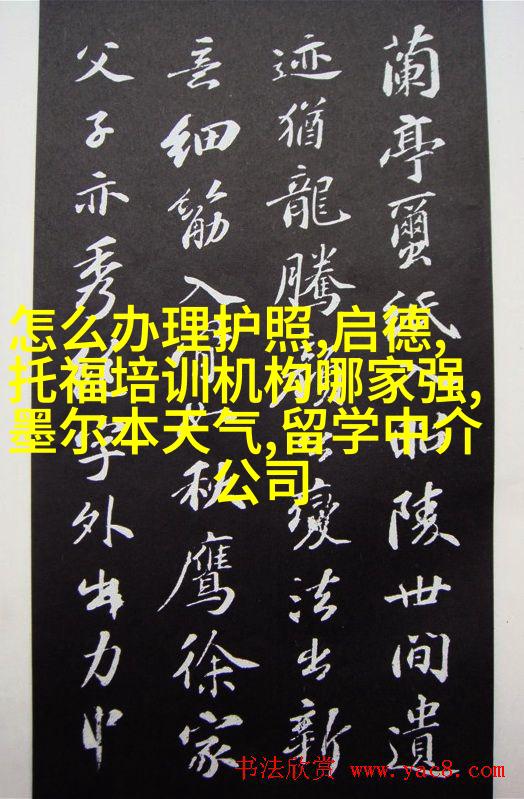 蘭亭蠒紙入昭陵世間遺
迹猶龍騰顏公變法出新
意細筋入骨如秋鷹徐家
父子亦秀絕字外出力中
怎么办理护照,启德,
托福培训机构哪家强,
墨尔本天气,留学中介
公司
书法欣赏 www.yac8.com